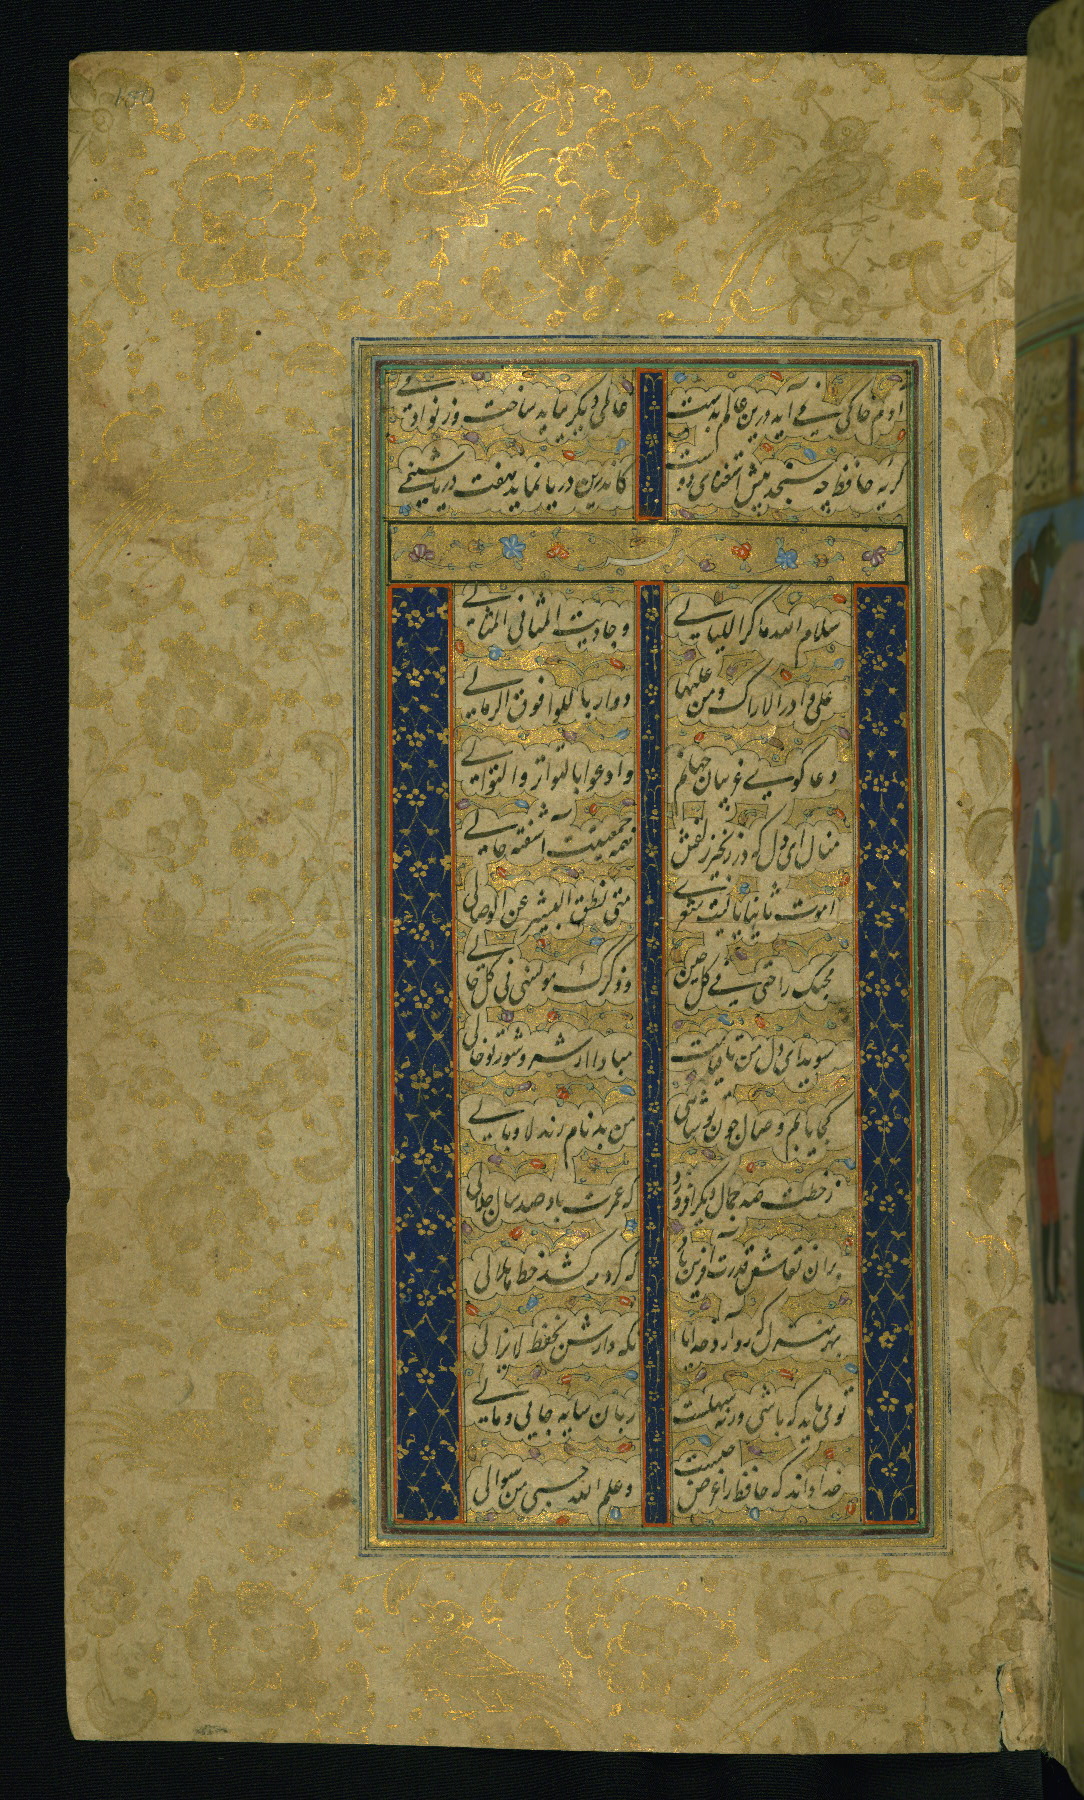 آدم خاکی نمی آید درین عالم بدست عالمی دیگر بباید ساخت وز نو آدمی
گریه حافظ چه سنجد پیش استغنای دوست کاندرین دریا نماید هفت دریا شبنمی
سلام الله ما کر اللیالی وجاوبت المثانی المثالی
علی وادی الاراک ومن علیها ودار باللوا فوق الرمالی
دعا گوی غریبان جهانم وادعوا بالتواتر والتوالی
منال ای دل که در زنجیر زلفش همه جمعیت آشفته حالی
اموت یا لیت شعری متی نطق البشیر عن الوصالی
محبک راحتی فی کل حین وذکرک مونسی فی کل حالی
سویدای دل من تا قیامت مبادا از شور تو خالی
کجا یابم وصال چون تو شاهی من بدنام رند لاوبالی
ز خطت صد جمال دیگر افزود که عمرت باد صد سال جلالی
بر آن نقاش قدرت آفرین باد که گرد مه کشد خط هلالی
بهر منزل که رو آرد خدایا نکه دارش بحفظ لایزالی
تو می باید که باشی ورنه سهلست زیان مایه جانی و مالی
خدا داند که حافظ را غرض چیست وعلم الله حسبی من سوالی